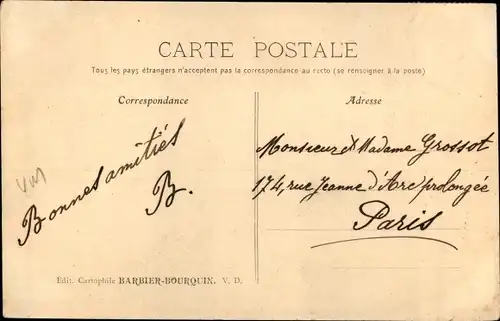 CARTE POSTALE
Tous les pays étrangers n'acceptent pas la correspondance au recto (se renseigner à la poste)
Correspondance
Adresse
Bonnes amitiés
B.
Monsieur & Madame Grossot
174, rue Jeanne d'Arc prolongée
Paris
Édit. Cartophile BARBIER-BOURQUIN. V. D.